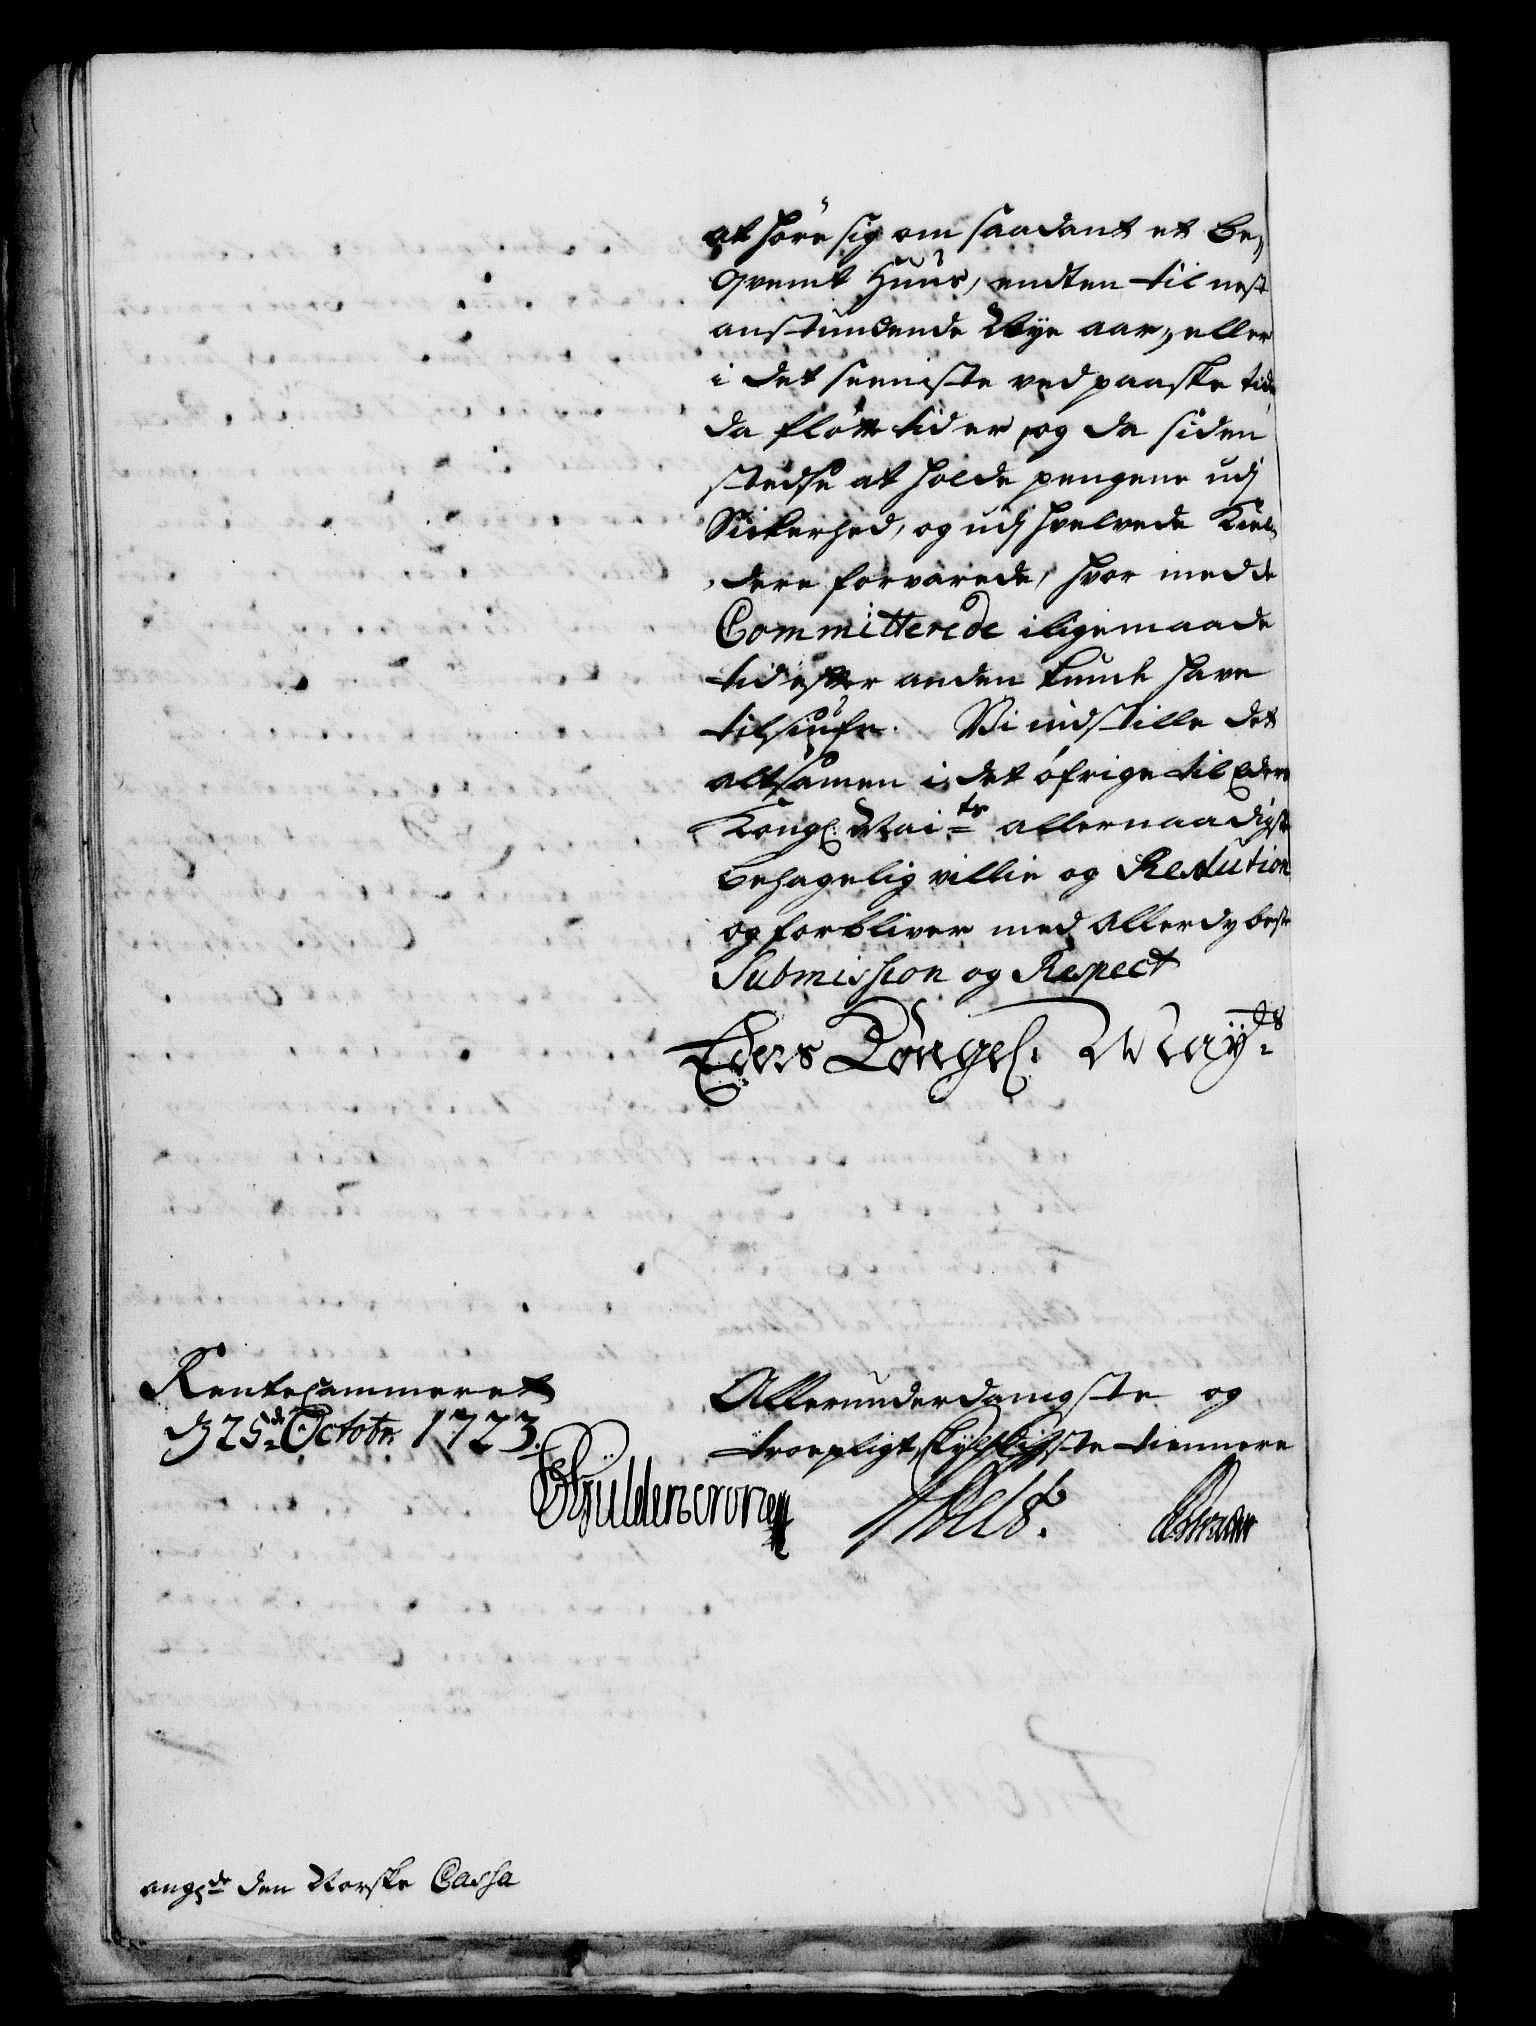 at høre sig om saadant et be¬
qvemt Huus, endten til nest
anstundende Nye aar, eller
i det seeniste ved paaske tide
da fløtte tid er, og da siden
stedse at holde pengene udj
Sickerhed, og udj hvelvede Kiel¬
dere forvarede, hvor med de
Committerede iligemaade
tid efter anden kunde have
tilsiufn. Vi indstille det
altsamen i det øfrige til Eders
Kongl: Mai¬ts allernaadigste
behagelig villie og Resolution
og forbliver med allerdybeste
Submission og Respect
Eders Kongel: May:ts
Rentecammeret
d 25de Octobr 1723.
Allerunderdanigste og
troepligtskyldigste tiennere
Güldencrone
angde den Norske Cassa